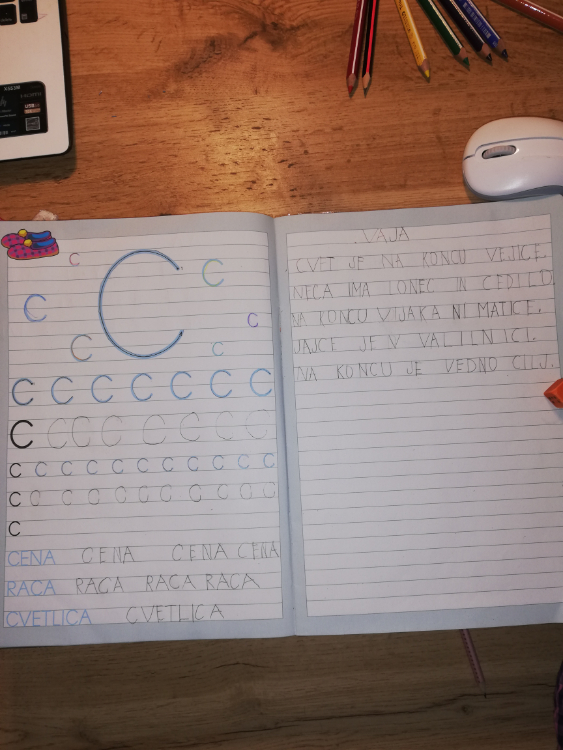 C
C
C
C
C
C
C
C C C C C C C
C C C C C C C C
C C C C C C C C C C C
C C C C C C C C C C
C
CENA CENA CENA CENA
RACA RACA RACA RACA
CVETLICA CVETLICA
VAJA
CVET JE NA KONCU VEJICE.
NECA IMA LONEC IN CEDILO
NA KONCU VIJAKA NI MATICE.
JAJCE JE V VALILNICI.
NA KONCU JE VEDNO CILJ.